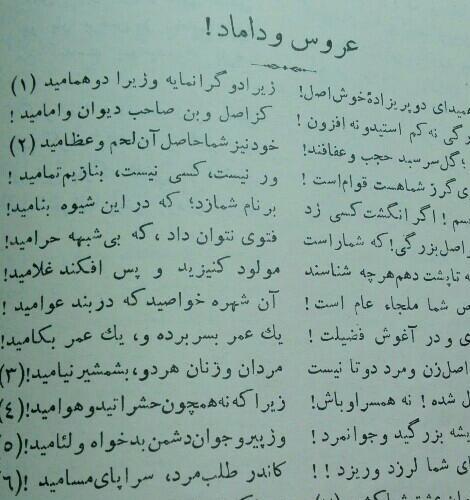 عروس و داماد!
دو پریزادهٔ خوش اصل! زیرا دو گرانمایه وزیرا دو همامید (۱)
نه کم استید و نه افزون! کز اصل و بن صاحب دیوان و امامید!
گل سر سبد حجب و عفافند! خود نیز شما حاصل آن لحم و عظامید (۲)
گرز شما هست قوام است! ور نیست، کسی نیست، بنازیم تمامید!
اگر انگشت کسی زد بر نام شما زد؛ که در این شیوه بنامید!
اصل بزرگی! که شمار است فتوی نتوان داد، که بی شبهه حرامید!
دهم هرچه شناسند مولود کنیزید و پس افکند غلامید!
شما ملجاء عام است! آن شهره خواصید که در بند عوامید!
و در آغوش فضیلت! یك عمر بسر برده و، یك عمر بکامید!
اصل زن و مرد دو تا نیست مردان و زنان هر دو، بشمشیر نیامید! (۳)
شده! نه همسر اوباش! زیرا که نه همچون حشراتید و هوامید! (۴)
بزرگید و جوانمرد! وز پیر و جوان دشمن بدخواه و لئامید! (۵)
شما لرزد و ریزد!! کاندر طلب مرد، سراپای مسامید! (۶)